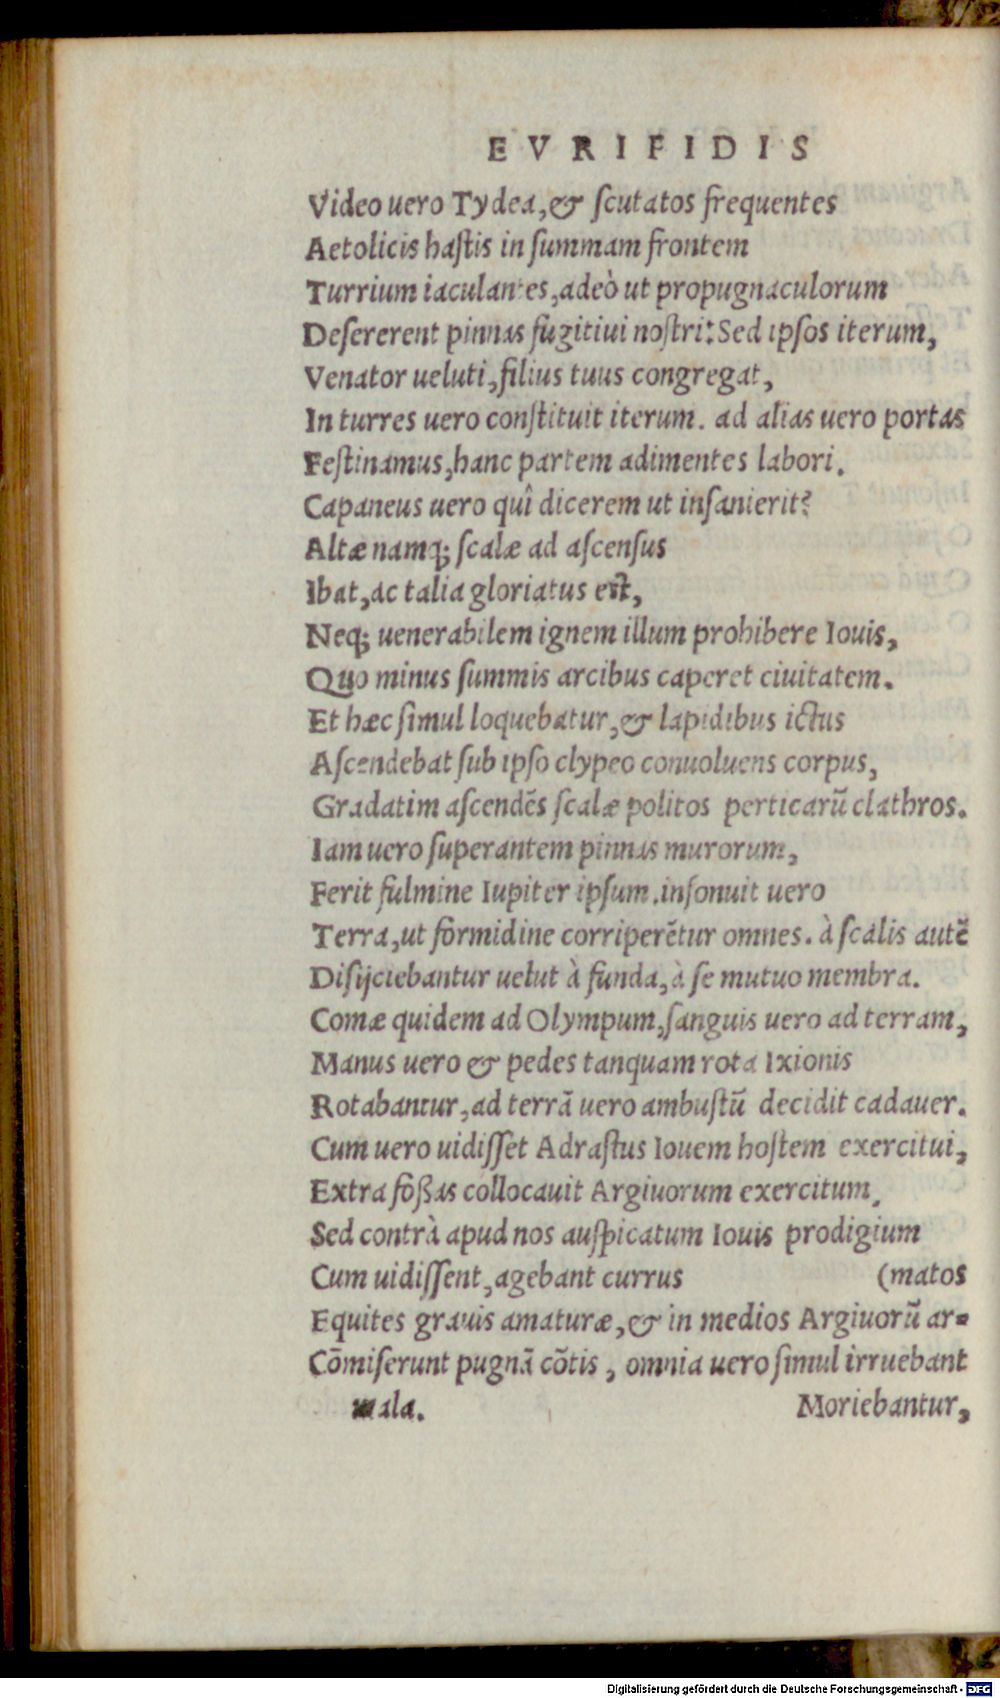 EVRIFIDIS
Video uero Tydea,& ſcutatos frequentes
Aetolicis haſtis in ſummam frontem
Turrium iaculantes,adeò ut propugnaculorum
Deſererent pinnas fugitiui noſtri:Sed ipſos iterum,
Venator ueluti,filius tuus congregat,
In turres uero conſtituit iterum. ad alias uero portas
Feſtinamus,hanc partem adimentes labori.
Capaneus uero quî dicerem ut inſanierit?
Altæ namq; ſcalæ ad aſcenſus
Ibat,ac talia gloriatus eſt,
Neq; uenerabilem ignem illum prohibere Iouis,
Quo minus ſummis arcibus caperet ciuitatem.
Et hæc ſimul loquebatur,& lapidibus ictus
Aſcendebat ſub ipſo clypeo conuoluens corpus,
Gradatim aſcendẽs ſcalæ politos perticarũ clathros.
Iam uero ſuperantem pinnas murorum,
Ferit fulmine Iupiter ipſum.inſonuit uero
Terra,ut formidine corriperẽtur omnes. à ſcalis autẽ
Diſijciebantur uelut à funda,à ſe mutuo membra.
Comæ quidem ad Olympum,ſanguis uero ad terram,
Manus uero & pedes tanquam rota Ixionis
Rotabantur,ad terrã uero ambuſtũ decidit cadauer.
Cum uero uidiſſet Adraſtus Iouem hoſtem exercitui,
Extra foßas collocauit Argiuorum exercitum,
Sed contrà apud nos auſpicatum Iouis prodigium
Cum uidiſſent,agebant currus (matos
Equites grauis amaturæ,& in medios Argiuorũ ar-
Cõmiſerunt pugnã cõtis, omnia uero ſimul irruebant
mala. Moriebantur,
Digitalisierung gefördert durch die Deutsche Forschungsgemeinschaft - DFG